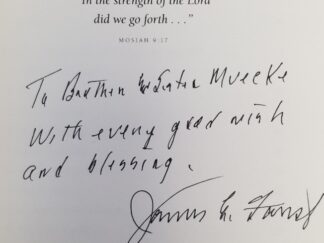 "In the strength of the Lord
did we go forth . . ."
MOSIAH 9:17
To Brother & Sister Muecke
With every good wish
and blessing.
James E. Faust